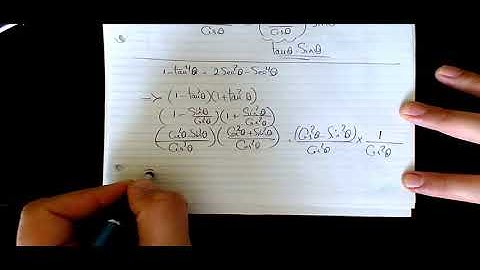 Cosθ
Cosθ
Sinθ
tanθ Sinθ
1 - tan⁴θ = 2Sec²θ - Sec⁴θ
→ (1 - tan²θ)(1 + tan²θ)
(1 - Sin²θ/Cos²θ)(1 + Sin²θ/Cos²θ)
(Cos²θ - Sin²θ/Cos²θ)(Cos²θ + Sin²θ/Cos²θ) = (Cos²θ - Sin²θ)/Cos²θ × 1/Cos²θ